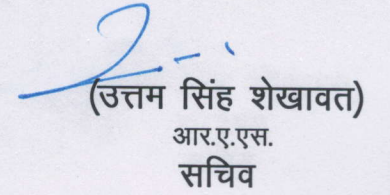 (उत्तम सिंह शेखावत)
आर.ए.एस.
सचिव